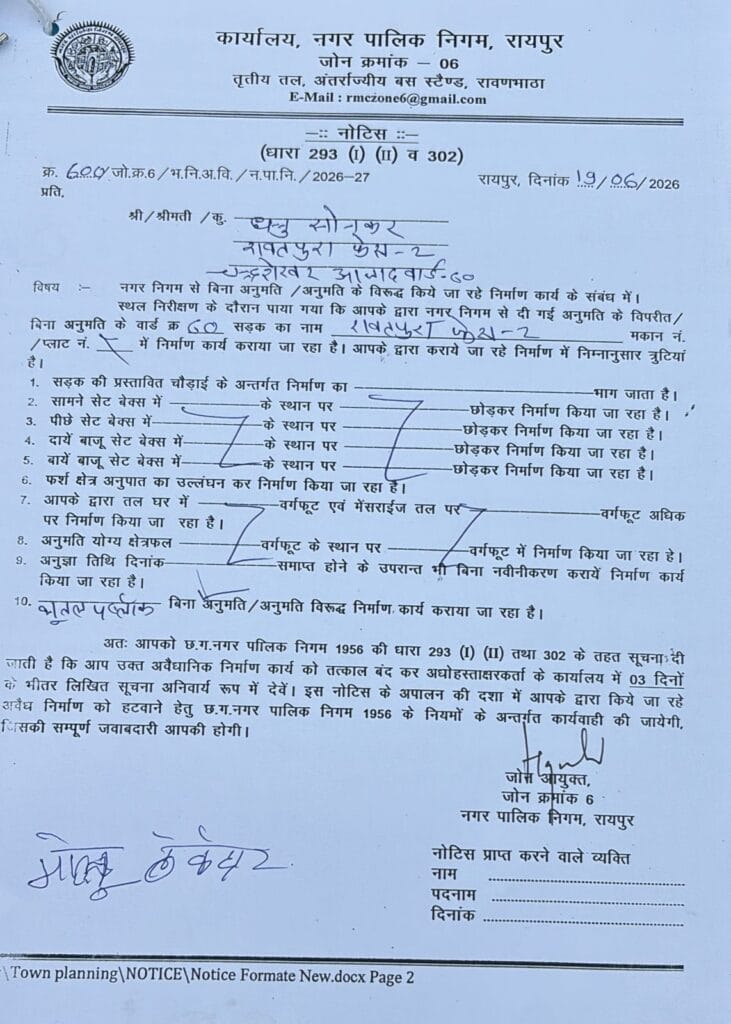 कार्यालय, नगर पालिक निगम, रायपुर
जोन क्रमांक – 06
तृतीय तल, अंतर्राज्यीय बस स्टैण्ड, रावणभाठा
E-Mail : rmczone6@gmail.com
–:: नोटिस ::–
(धारा 293 (I) (II) व 302)
क्र. 600/जो.क्र.6/भ.नि.अ.वि./न.पा.नि./2026-27 रायपुर, दिनांक 19/06/2026
प्रति,
श्री/श्रीमती /कु. धन्नु सोनकर
रावतपुरा फेस-2
चन्द्रशेखर आजाद वार्ड-60
विषय :- नगर निगम से बिना अनुमति /अनुमति के विरूद्ध किये जा रहे निर्माण कार्य के संबंध में।
स्थल निरीक्षण के दौरान पाया गया कि आपके द्वारा नगर निगम से दी गई अनुमति के विपरीत/
बिना अनुमति के वार्ड क्र 60 सड़क का नाम रावतपुरा फेस-2 मकान नं.
/प्लाट नं. में निर्माण कार्य कराया जा रहा है। आपके द्वारा कराये जा रहे निर्माण में निम्नानुसार त्रुटियां
है।
1. सड़क की प्रस्तावित चौड़ाई के अन्तर्गत निर्माण का भाग जाता है।
2. सामने सेट बेक्स में के स्थान पर छोड़कर निर्माण किया जा रहा है।
3. पीछे सेट बेक्स में के स्थान पर छोड़कर निर्माण किया जा रहा है।
4. दायें बाजू सेट बेक्स में के स्थान पर छोड़कर निर्माण किया जा रहा है।
5. बायें बाजू सेट बेक्स में के स्थान पर छोड़कर निर्माण किया जा रहा है।
6. फर्श क्षेत्र अनुपात का उल्लंघन कर निर्माण किया जा रहा है।
7. आपके द्वारा तल घर में वर्गफूट एवं मेंसराईज तल पर वर्गफूट अधिक
पर निर्माण किया जा रहा है।
8. अनुमति योग्य क्षेत्रफल वर्गफूट के स्थान पर वर्गफूट में निर्माण किया जा रहा हे।
9. अनुज्ञा तिथि दिनांक समाप्त होने के उपरान्त भी बिना नवीनीकरण करायें निर्माण कार्य
किया जा रहा है।
10. बिना अनुमति/अनुमति विरूद्ध निर्माण कार्य कराया जा रहा है।
अतः आपको छ.ग.नगर पालिक निगम 1956 की धारा 293 (I) (II) तथा 302 के तहत सूचना दी
जाती है कि आप उक्त अवैधानिक निर्माण कार्य को तत्काल बंद कर अधोहस्ताक्षरकर्ता के कार्यालय में 03 दिनों
के भीतर लिखित सूचना अनिवार्य रूप में देवें। इस नोटिस के अपालन की दशा में आपके द्वारा किये जा रहे
अवैध निर्माण को हटवाने हेतु छ.ग.नगर पालिक निगम 1956 के नियमों के अन्तर्गत कार्यवाही की जायेगी,
जिसकी सम्पूर्ण जवाबदारी आपकी होगी।
जोन आयुक्त,
जोन क्रमांक 6
नगर पालिक निगम, रायपुर
नोटिस प्राप्त करने वाले व्यक्ति
नाम
पदनाम
दिनांक
\Town planning\NOTICE\Notice Formate New.docx Page 2